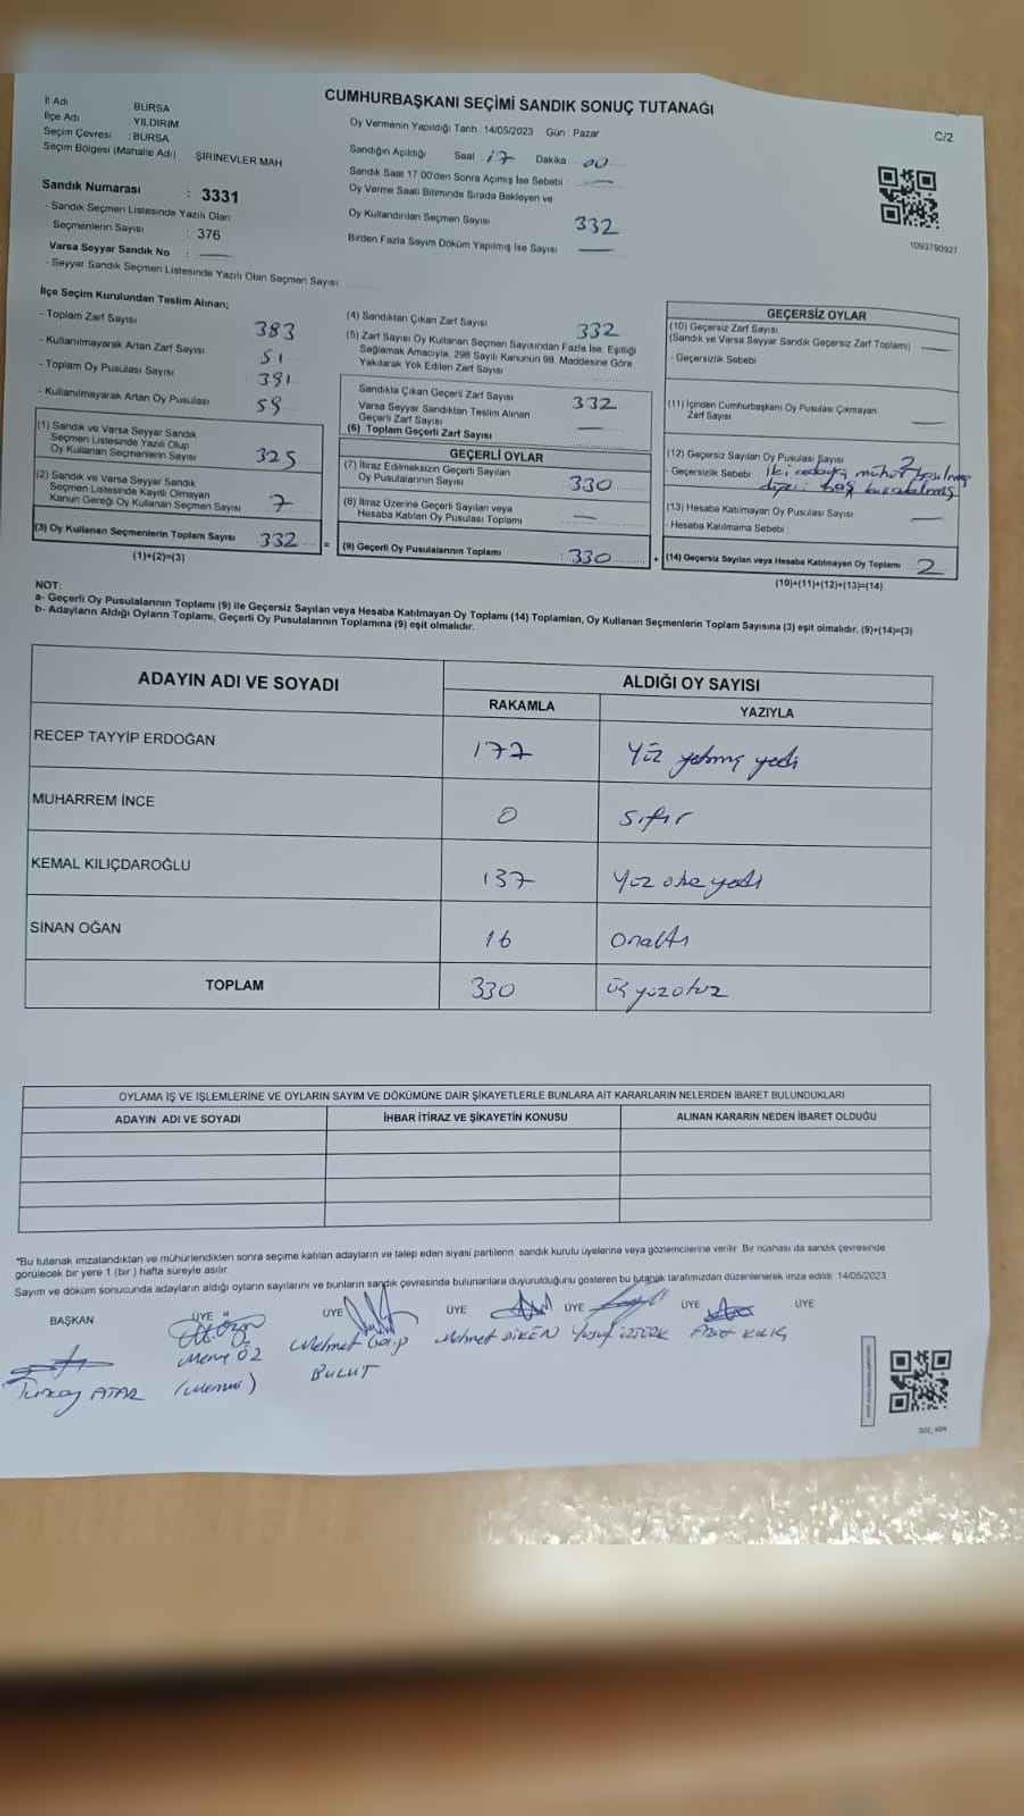 CUMHURBAŞKANI SEÇİMİ SANDIK SONUÇ TUTANAĞI
C/2
İl Adı : BURSA
İlçe Adı : YILDIRIM
Seçim Çevresi : BURSA
Seçim Bölgesi (Mahalle Adı) : ŞİRİNEVLER MAH
Sandık Numarası : 3331
- Sandık Seçmen Listesinde Yazılı Olan
Seçmenlerin Sayısı : 376
Varsa Seyyar Sandık No : —
- Seyyar Sandık Seçmen Listesinde Yazılı Olan Seçmen Sayısı
Oy Vermenin Yapıldığı Tarih : 14/05/2023 Gün : Pazar
Sandığın Açıldığı Saat : 17 Dakika : 00
Sandık Saat 17.00'den Sonra Açılmış İse Sebebi : —
Oy Verme Saati Bitiminde Sırada Bekleyen ve
Oy Kullandırılan Seçmen Sayısı 332
Birden Fazla Sayım Döküm Yapılmış İse Sayısı —
1093790927
İlçe Seçim Kurulundan Teslim Alınan;
- Toplam Zarf Sayısı 383
- Kullanılmayarak Artan Zarf Sayısı 51
- Toplam Oy Pusulası Sayısı 391
- Kullanılmayarak Artan Oy Pusulası 59
(1) Sandık ve Varsa Seyyar Sandık
Seçmen Listesinde Yazılı Olup
Oy Kullanan Seçmenlerin Sayısı 325
(2) Sandık ve Varsa Seyyar Sandık
Seçmen Listesinde Kayıtlı Olmayan
Kanun Gereği Oy Kullanan Seçmen Sayısı 7
(3) Oy Kullanan Seçmenlerin Toplam Sayısı 332
(1)+(2)=(3)
(4) Sandıktan Çıkan Zarf Sayısı 332
(5) Zarf Sayısı Oy Kullanan Seçmen Sayısından Fazla İse, Eşitliği
Sağlamak Amacıyla, 298 Sayılı Kanunun 98. Maddesine Göre
Yakılarak Yok Edilen Zarf Sayısı
Sandıkta Çıkan Geçerli Zarf Sayısı 332
Varsa Seyyar Sandıktan Teslim Alınan
Geçerli Zarf Sayısı —
(6) Toplam Geçerli Zarf Sayısı
GEÇERLİ OYLAR
(7) İtiraz Edilmeksizin Geçerli Sayılan
Oy Pusulalarının Sayısı 330
(8) İtiraz Üzerine Geçerli Sayılan veya
Hesaba Katılan Oy Pusulası Toplamı —
= (9) Geçerli Oy Pusulalarının Toplamı : 330
GEÇERSİZ OYLAR
(10) Geçersiz Zarf Sayısı
(Sandık ve Varsa Seyyar Sandık Geçersiz Zarf Toplamı) —
- Geçersizlik Sebebi :
(11) İçinden Cumhurbaşkanı Oy Pusulası Çıkmayan
Zarf Sayısı —
(12) Geçersiz Sayılan Oy Pusulası Sayısı 2
Geçersizlik Sebebi : İki adaya mühür basılmış
diğeri boş bırakılmış
(13) Hesaba Katılmayan Oy Pusulası Sayısı —
- Hesaba Katılmama Sebebi :
+ (14) Geçersiz Sayılan veya Hesaba Katılmayan Oy Toplamı 2
(10)+(11)+(12)+(13)=(14)
NOT:
a- Geçerli Oy Pusulalarının Toplamı (9) ile Geçersiz Sayılan veya Hesaba Katılmayan Oy Toplamı (14) Toplamları, Oy Kullanan Seçmenlerin Toplam Sayısına (3) eşit olmalıdır. (9)+(14)=(3)
b- Adayların Aldığı Oyların Toplamı, Geçerli Oy Pusulalarının Toplamına (9) eşit olmalıdır.
ADAYIN ADI VE SOYADI ALDIĞI OY SAYISI
RAKAMLA YAZIYLA
RECEP TAYYİP ERDOĞAN 177 Yüz yetmiş yedi
MUHARREM İNCE 0 sıfır
KEMAL KILIÇDAROĞLU 137 Yüz otuz yedi
SİNAN OĞAN 16 onaltı
TOPLAM 330 üç yüz otuz
OYLAMA İŞ VE İŞLEMLERİNE VE OYLARIN SAYIM VE DÖKÜMÜNE DAİR ŞİKAYETLERLE BUNLARA AİT KARARLARIN NELERDEN İBARET BULUNDUKLARI
ADAYIN ADI VE SOYADI İHBAR İTİRAZ VE ŞİKAYETİN KONUSU ALINAN KARARIN NEDEN İBARET OLDUĞU
*Bu tutanak imzalandıktan ve mühürlendikten sonra seçime katılan adayların ve talep eden siyasi partilerin sandık kurulu üyelerine veya gözlemcilerine verilir. Bir nüshası da sandık çevresinde
görülecek bir yere 1 (bir) hafta süreyle asılır.
Sayım ve döküm sonucunda adayların aldığı oyların sayılarını ve bunların sandık çevresinde bulunanlara duyurulduğunu gösteren bu tutanak tarafımızdan düzenlenerek imza edildi. 14/05/2023
BAŞKAN ÜYE ÜYE ÜYE ÜYE ÜYE ÜYE
Turkay ATAR
Merve ÖZ
(memur)
Mehmet Galip
BULUT
Mehmet DİKEN
Yusuf ÖZTÜRK
KILIÇ